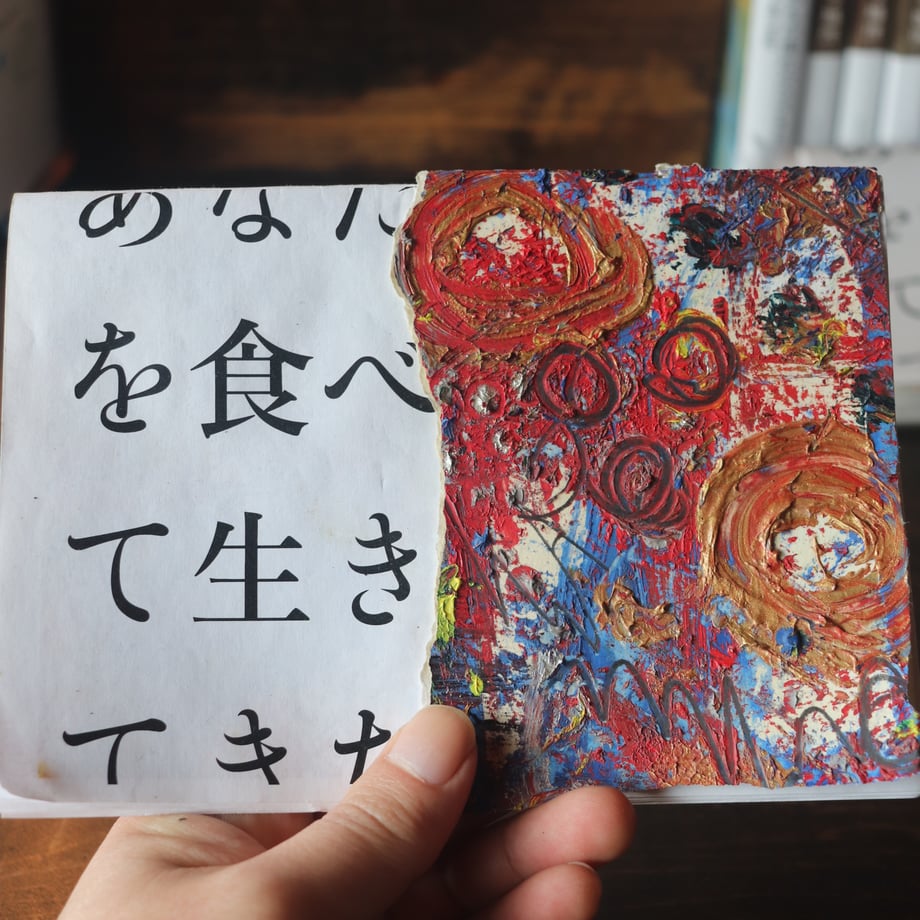 あなた
を食べ
て生き
てきた